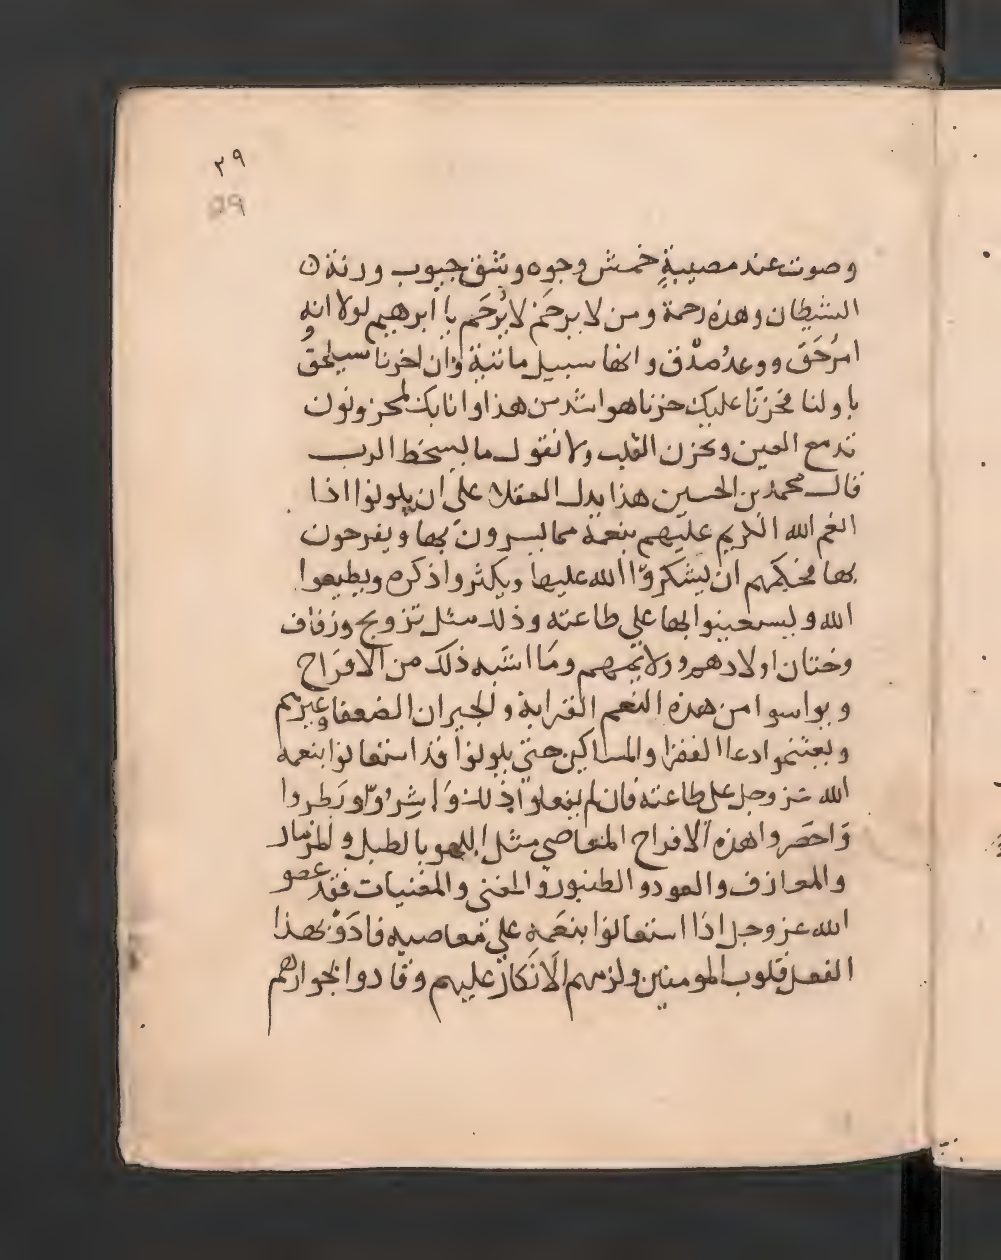 ٢٩
٢٩
وصوت عند مصيبةٍ خمش وجوه وشق جيوب ورنة
الشيطان وهذه رحمة ومن لا يرحَم لا يُرْحَم يا ابرهيم لولا انه
امرُ حَقَ ووعدُ صدْق وانها سبيل ماتية وان اخرنا سيلحقُ
باولنا لحزنَّا عليك حزنا هو اشد من هذا وانا بك لمحزونون
تدمع العين ويحزن القلب ولا نقول ما يسخط الرب
قال محمد بن الحسين هذا يدل العقلا علي ان يكونوا اذا
انعم الله الكريم عليهم بنعمة مما يسرون بها ويفرحون
بها فحكمهم ان يشكروا الله عليها ويكثروا ذكره ويطيعوا
الله ويستعينوا بها علي طاعته وذلك مثل تزويج وزفاف
وختان اولادهم وولائمهم وما اشبه ذلك من الافراح
ويواسوا من هذه النعم القرابة والجيران الضعفا وغيرهم
ويغتنموا دعا الفقرا والمساكين حتي يكونوا قد استعانوا بنعمة
الله عز وجل علي طاعته فان لم يفعلوا ذلك واشروا وبطروا
واحضروا هذه الافراح المعاصي مثل اللهو بالطبل والمزمار
والمعازف والعود والطنبور والمغني والمغنيات فقد عصو
الله عز وجل اذا استعانوا بنعمه علي معاصيه فاذوْ بهذا
الفعل قلوب المومنين ولزمهم الانكار عليهم وتاذوا بجوارهم